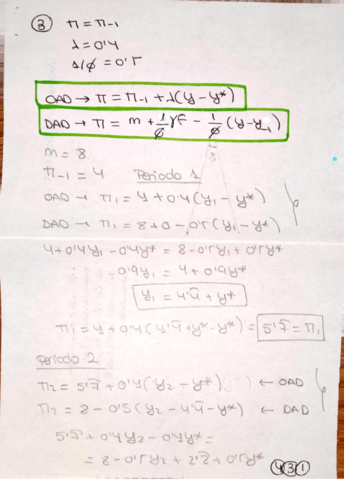 ③ π = π₋₁
λ = 0'4
1/φ = 0'5
OAD → π = π₋₁ + λ(y - y*)
DAD → π = m + 1/φ γF - 1/φ (y - y₋₁)
m = 8
π₋₁ = 4 Periodo 1
OAD → π₁ = 4 + 0'4 (y₁ - y*)
DAD → π₁ = 8 + 0 - 0'5 (y₁ - y*)
4 + 0'4y₁ - 0'4y* = 8 - 0'5y₁ + 0'5y*
0'9y₁ = 4 + 0'9y*
y₁ = 4'4̂ + y*
π₁ = 4 + 0'4 (4'4̂ + y* - y*) = 5'7̂ = π₁
Periodo 2
π₂ = 5'7̂ + 0'4 (y₂ - y*) ← OAD
π₂ = 8 - 0'5 (y₂ - 4'4̂ - y*) ← DAD
5'7̂ + 0'4y₂ - 0'4y* =
= 8 - 0'5y₂ + 2'2̂ + 0'5y*